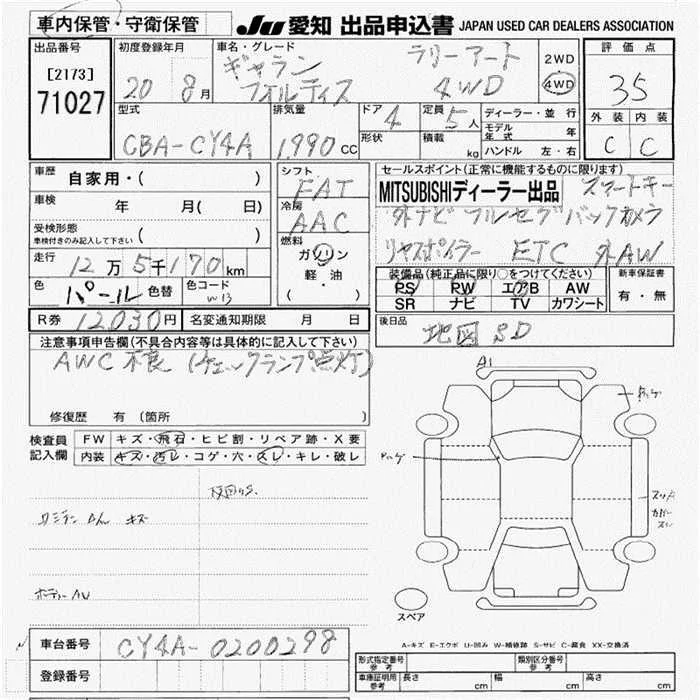 車内保管・守衛保管
JU 愛知 出品申込書 JAPAN USED CAR DEALERS ASSOCIATION
出品番号
[2173]
71027
初度登録年月
20 8月
車名・グレード
ギャラン フォルティス
ラリーアート
4WD
2WD
4WD
評価点
35
外装 内装
C C
型式
CBA-CY4A
排気量
1,990 CC
ドア 4
定員 5 人
形状
積載 kg
ディーラー・並行
モデル年式 年
ハンドル 左・右
車歴
自家用・( )
車検
年 月( 日)
受検形態
車検付きのみ記入して下さい ( )
走行
12万5千170km
色 パール 色替
色コード W13
R券 12030円 名変通知期限 月 日
シフト
FAT
冷房
AAC
燃料
ガソリン
軽・油
( )
セールスポイント(正常に機能するものに限ります)
MITSUBISHIディーラー出品 スマートキー
外ナビ フルセグ バックカメラ
リヤスポイラー ETC 外AW
装備品(純正品に限り○をつけてください)
PS PW エアB AW
SR ナビ TV カワシート
新車保証書
有・無
後日品
地図SD
注意事項申告欄(不具合内容等は具体的に記入して下さい)
AWC不良 (チェックランプ点灯)
修復歴 有 (箇所 )
検査員記入欄
FW キズ・飛石・ヒビ割・リペア跡・X要
内装 キズ・汚レ・コゲ・穴・スレ・キレ・破レ
キズ
ボディー AW
A1
スペア
A-キズ E-エクボ U-凹み W-補修跡 S-サビ C-腐食 XX-交換済
車台番号 CY4A-0200298
登録番号
形式指定番号 参考
類別区分番号 参考
車庫証明用 参考 長さ cm 幅 cm 高さ cm